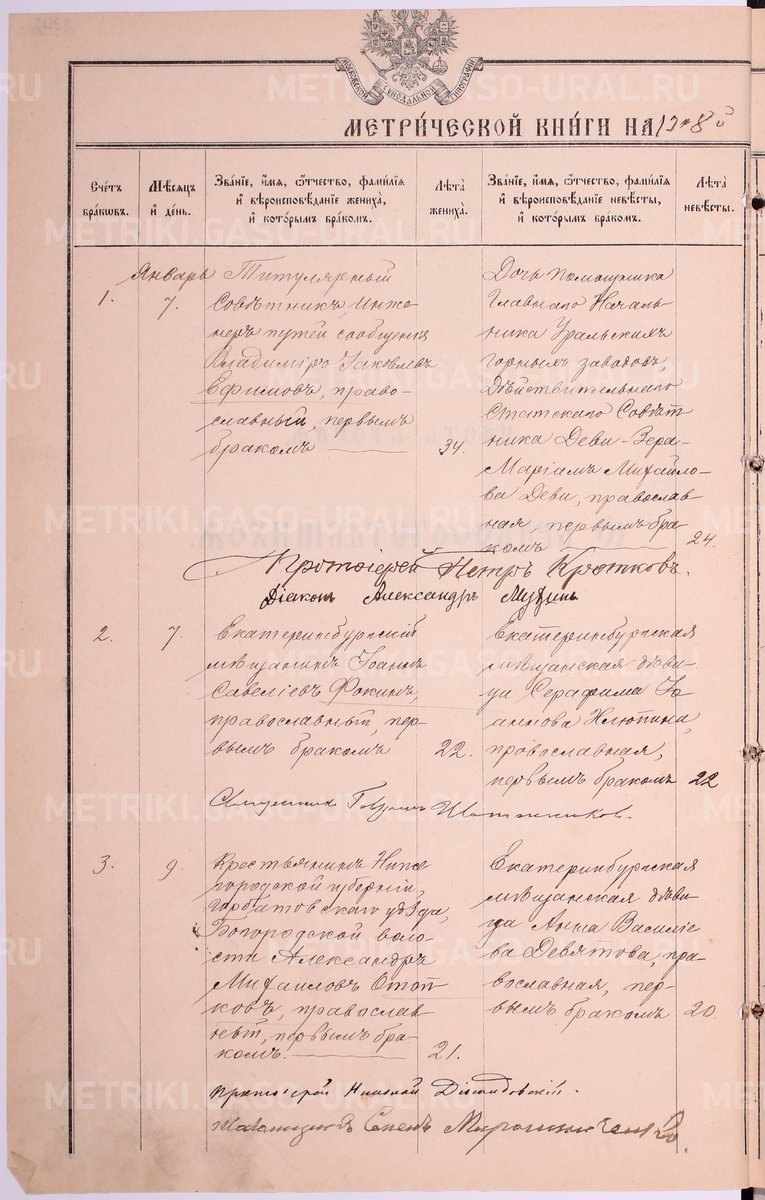 МОСКОВСКОЙ СИНОДАЛЬНОЙ ТИПОГРАФІИ
МЕТРИ́ЧЕСКОЙ КНИ́ГИ НА 19
Сче́тъ бра́кωвъ.
Мѣ́сяцъ и҆ де́нь.
Зва́нїе, и҆́мя, ѻ҆́тчество, фамѝлїя и҆ вѣроисповѣ́данїе жениха̀, и҆ кото́рымъ бра́комъ.
Лѣ́та жениха̀.
Зва́нїе, и҆́мя, ѻ҆́тчество, фамѝлїя и҆ вѣроисповѣ́данїе невѣ́сты, и҆ кото́рымъ бра́комъ.
Лѣ́та невѣ́сты.
Январь
1.
7.
Титулярный
Совѣтникъ, Инже-
неръ путей сообщенія
Владиміръ Іаковлевъ
Ефимовъ, право-
славный, первымъ
бракомъ
34.
Дочь Помощника
Главнаго Началь-
ника Уральскихъ
горныхъ заводовъ,
Дѣйствительнаго
Статскаго Совѣт
ника Деви-Зера-
Маріамъ Михайло-
ва Деви, православ-
ная, первымъ бра-
комъ
24.
Протоіерей Петръ
Діаконъ Александръ
2.
7.
Екатеринбургскій
мѣщанинъ Іоаннъ
Савеліевъ Фокинъ,
православный, пер-
вымъ бракомъ
22.
Екатеринбургская
мѣщанская дѣви-
ца Серафима Іо-
аннова Клюпина,
православная,
первымъ бракомъ
22
Священникъ
3.
9.
Крестьянинъ Ниже
городской губерніи,
Горбатовскаго уѣзда,
Богородской воло-
сти Александръ
Михаиловъ Отоп
ковъ, православ
ный, первымъ бра-
комъ.
21.
Екатеринбургская
мѣщанская дѣви-
ца Анна Василіе
ва Девятова, пра-
вославная, пер-
вымъ бракомъ
20.
Протоіерей Николай
METRIKI.GASO-URAL.RU